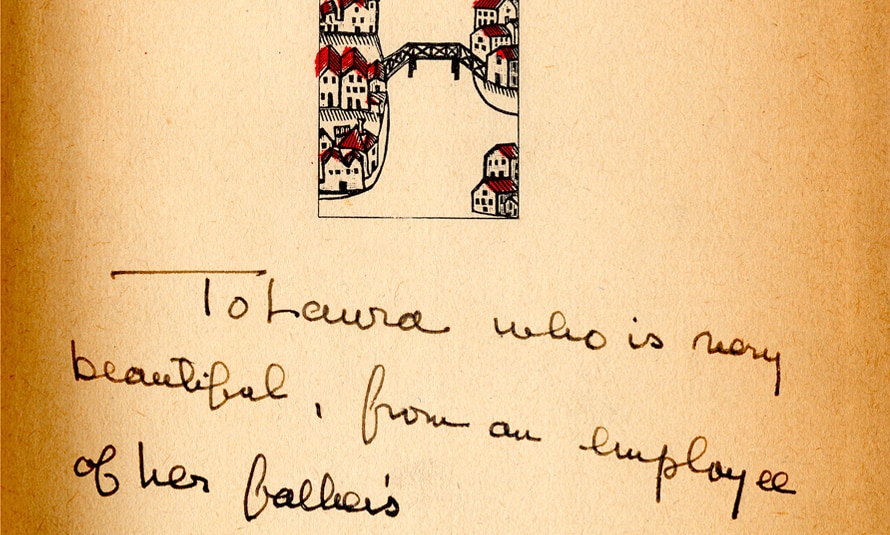 To Laura who is very
beautiful, from an employee
of her father's